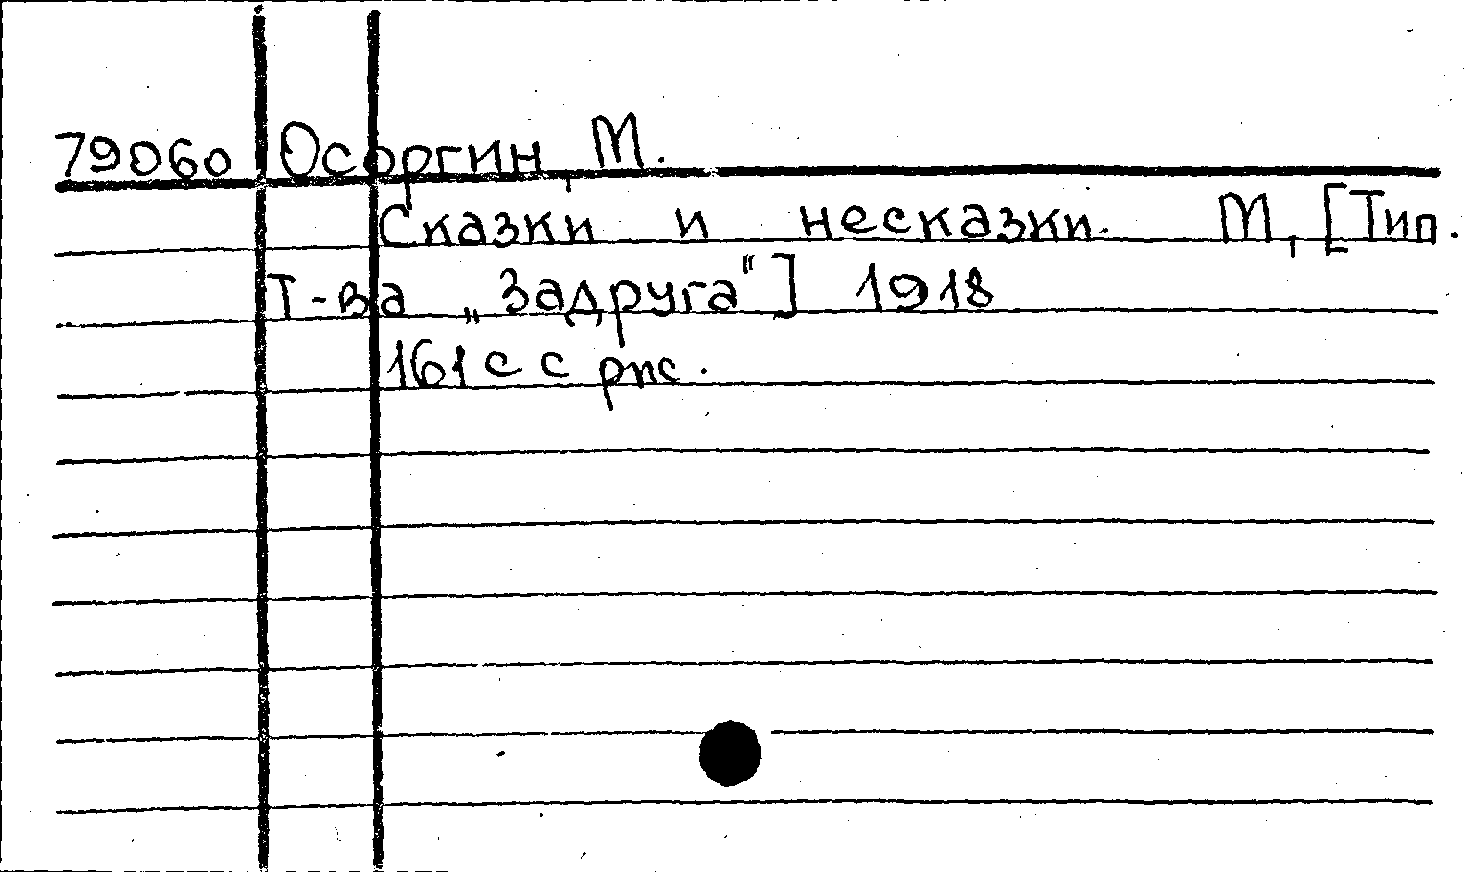 79060 Осоргин, М.
Сказки и несказки. М, [Тип.
Т-ва „Задруга"] 1918
161 с с рис.